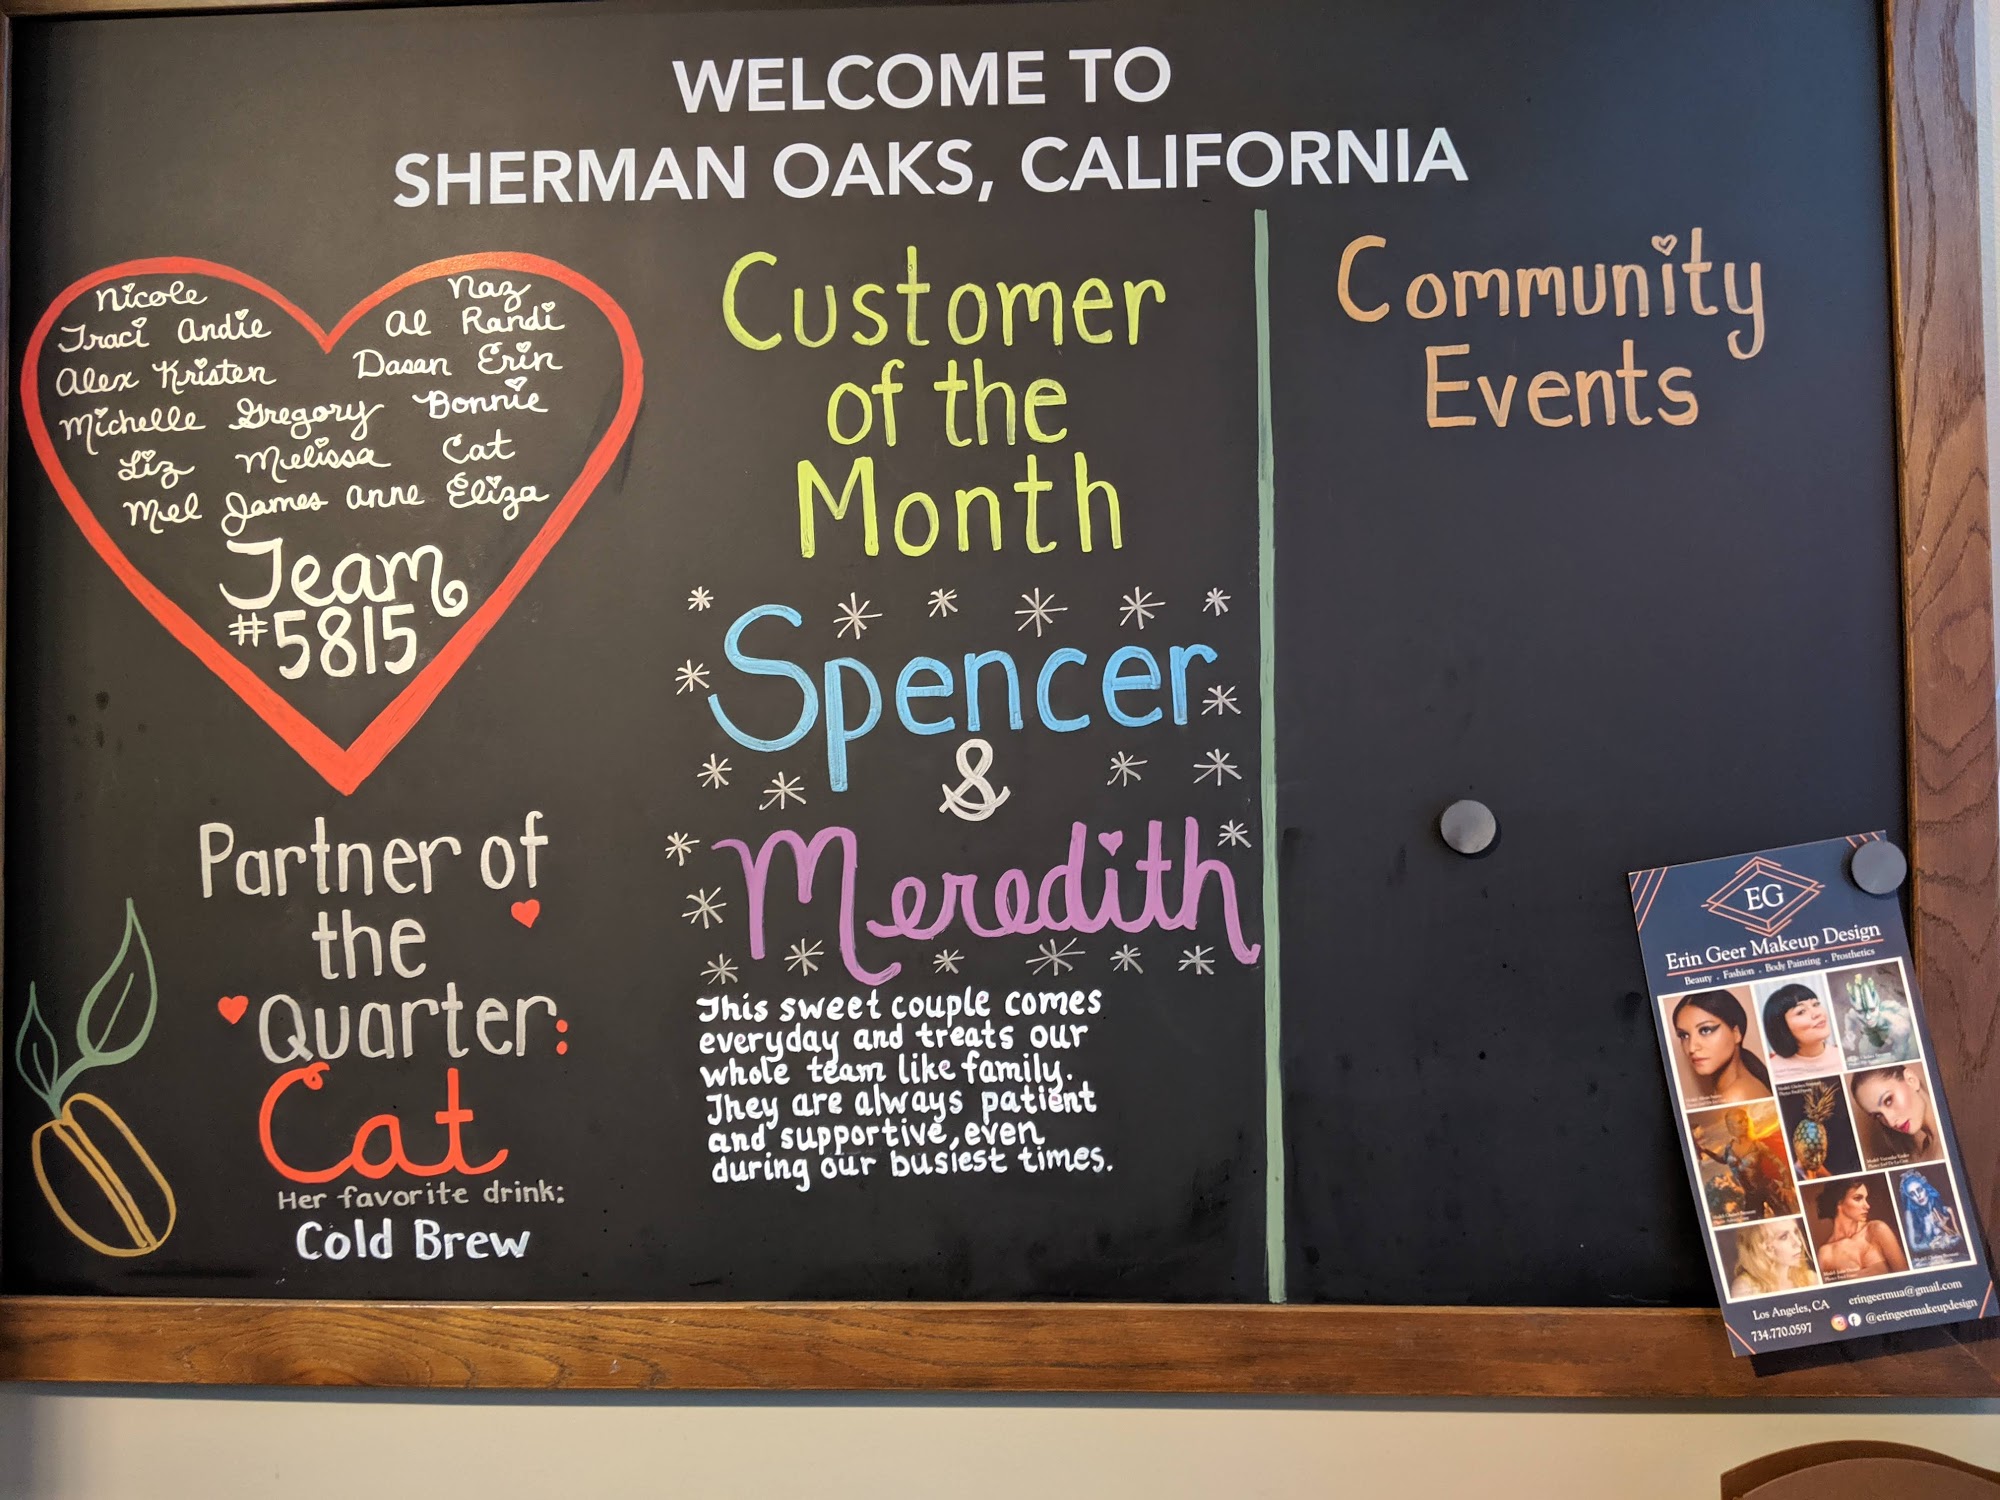 WELCOME TO
SHERMAN OAKS, CALIFORNIA
Nicole Naz
Traci Andie Al Randi
Alex Kristen Dasan Erin
Michelle Gregory Bonnie
Liz Melissa Cat
Mel James Anne Eliza
Team
#5815
Partner of
the
Quarter:
Cat
Her favorite drink:
Cold Brew
Customer
of the
Month
Spencer
&
Meredith
This sweet couple comes
everyday and treats our
whole team like family.
They are always patient
and supportive, even
during our busiest times.
Community
Events
EG
Erin Geer Makeup Design
Beauty . Fashion . Body Painting . Prosthetics
Los Angeles, CA eringeermua@gmail.com
734.770.0597 @eringeermakeupdesign